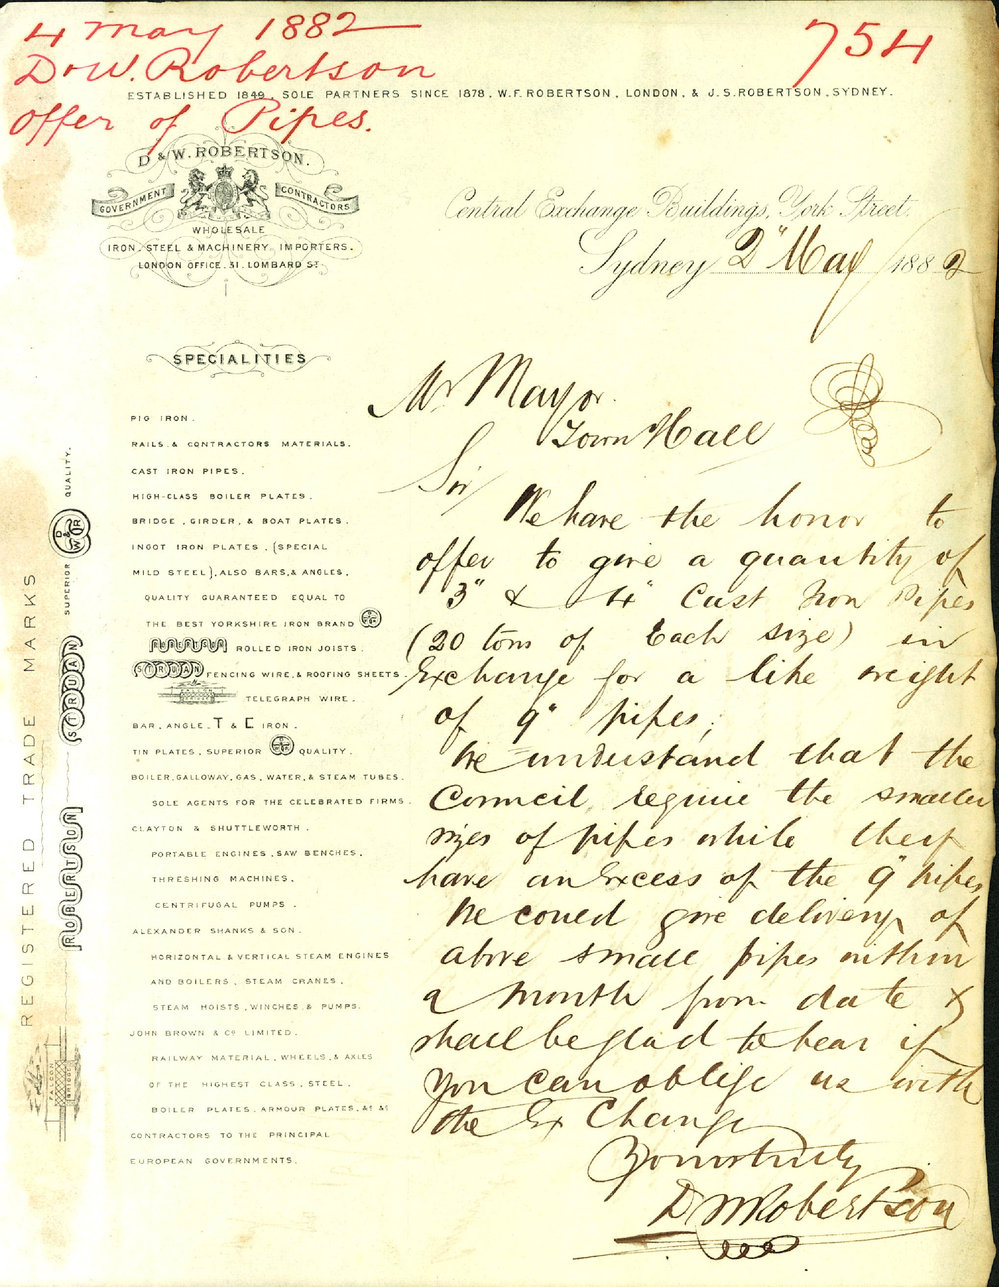 4 May 1882
D & W. Robertson
Offer of Pipes.
754
ESTABLISHED 1849, SOLE PARTNERS SINCE 1878, W.F. ROBERTSON, LONDON, & J.S. ROBERTSON, SYDNEY.
D & W. ROBERTSON.
GOVERNMENT CONTRACTORS
WHOLESALE
IRON, STEEL & MACHINERY IMPORTERS.
LONDON OFFICE, 31, LOMBARD ST.
Central Exchange Buildings, York Street.
Sydney 2" May 1882
SPECIALITIES
PIG IRON.
RAILS & CONTRACTORS MATERIALS.
CAST IRON PIPES.
HIGH-CLASS BOILER PLATES.
BRIDGE, GIRDER, & BOAT PLATES.
INGOT IRON PLATES, (SPECIAL
MILD STEEL), ALSO BARS, & ANGLES,
QUALITY GUARANTEED EQUAL TO
THE BEST YORKSHIRE IRON BRAND D&WR
ROBERTSON ROLLED IRON JOISTS.
STRUAN FENCING WIRE, & ROOFING SHEETS.
TELEGRAPH WIRE.
BAR, ANGLE, T & C IRON.
TIN PLATES, SUPERIOR D&WR QUALITY.
BOILER, GALLOWAY, GAS, WATER, & STEAM TUBES.
SOLE AGENTS FOR THE CELEBRATED FIRMS.
CLAYTON & SHUTTLEWORTH.
PORTABLE ENGINES, SAW BENCHES,
THRESHING MACHINES,
CENTRIFUGAL PUMPS.
ALEXANDER SHANKS & SON.
HORIZONTAL & VERTICAL STEAM ENGINES
AND BOILERS, STEAM CRANES,
STEAM HOISTS, WINCHES & PUMPS.
JOHN BROWN & CO. LIMITED.
RAILWAY MATERIAL, WHEELS, & AXLES
OF THE HIGHEST CLASS, STEEL,
BOILER PLATES, ARMOUR PLATES, &c &c
CONTRACTORS TO THE PRINCIPAL
EUROPEAN GOVERNMENTS.
REGISTERED TRADE MARKS
FALCON BRIDGE
ROBERTSON
STRUAN
SUPERIOR D&WR QUALITY.
Mr Mayor.
Town Hall
Sir/
We have the honor to
offer to give a quantity of
3" & 4" Cast Iron Pipes
(20 tons of Each size) in
Exchange for a like weight
of 9" pipes,
We understand that the
Council require the smaller
sizes of pipes while they
have an Excess of the 9" pipes
We could give delivery of
above small pipes within
a month from date &
shall be glad to hear if
you can oblige us with
the Exchange
Yours truly
D W Robertson